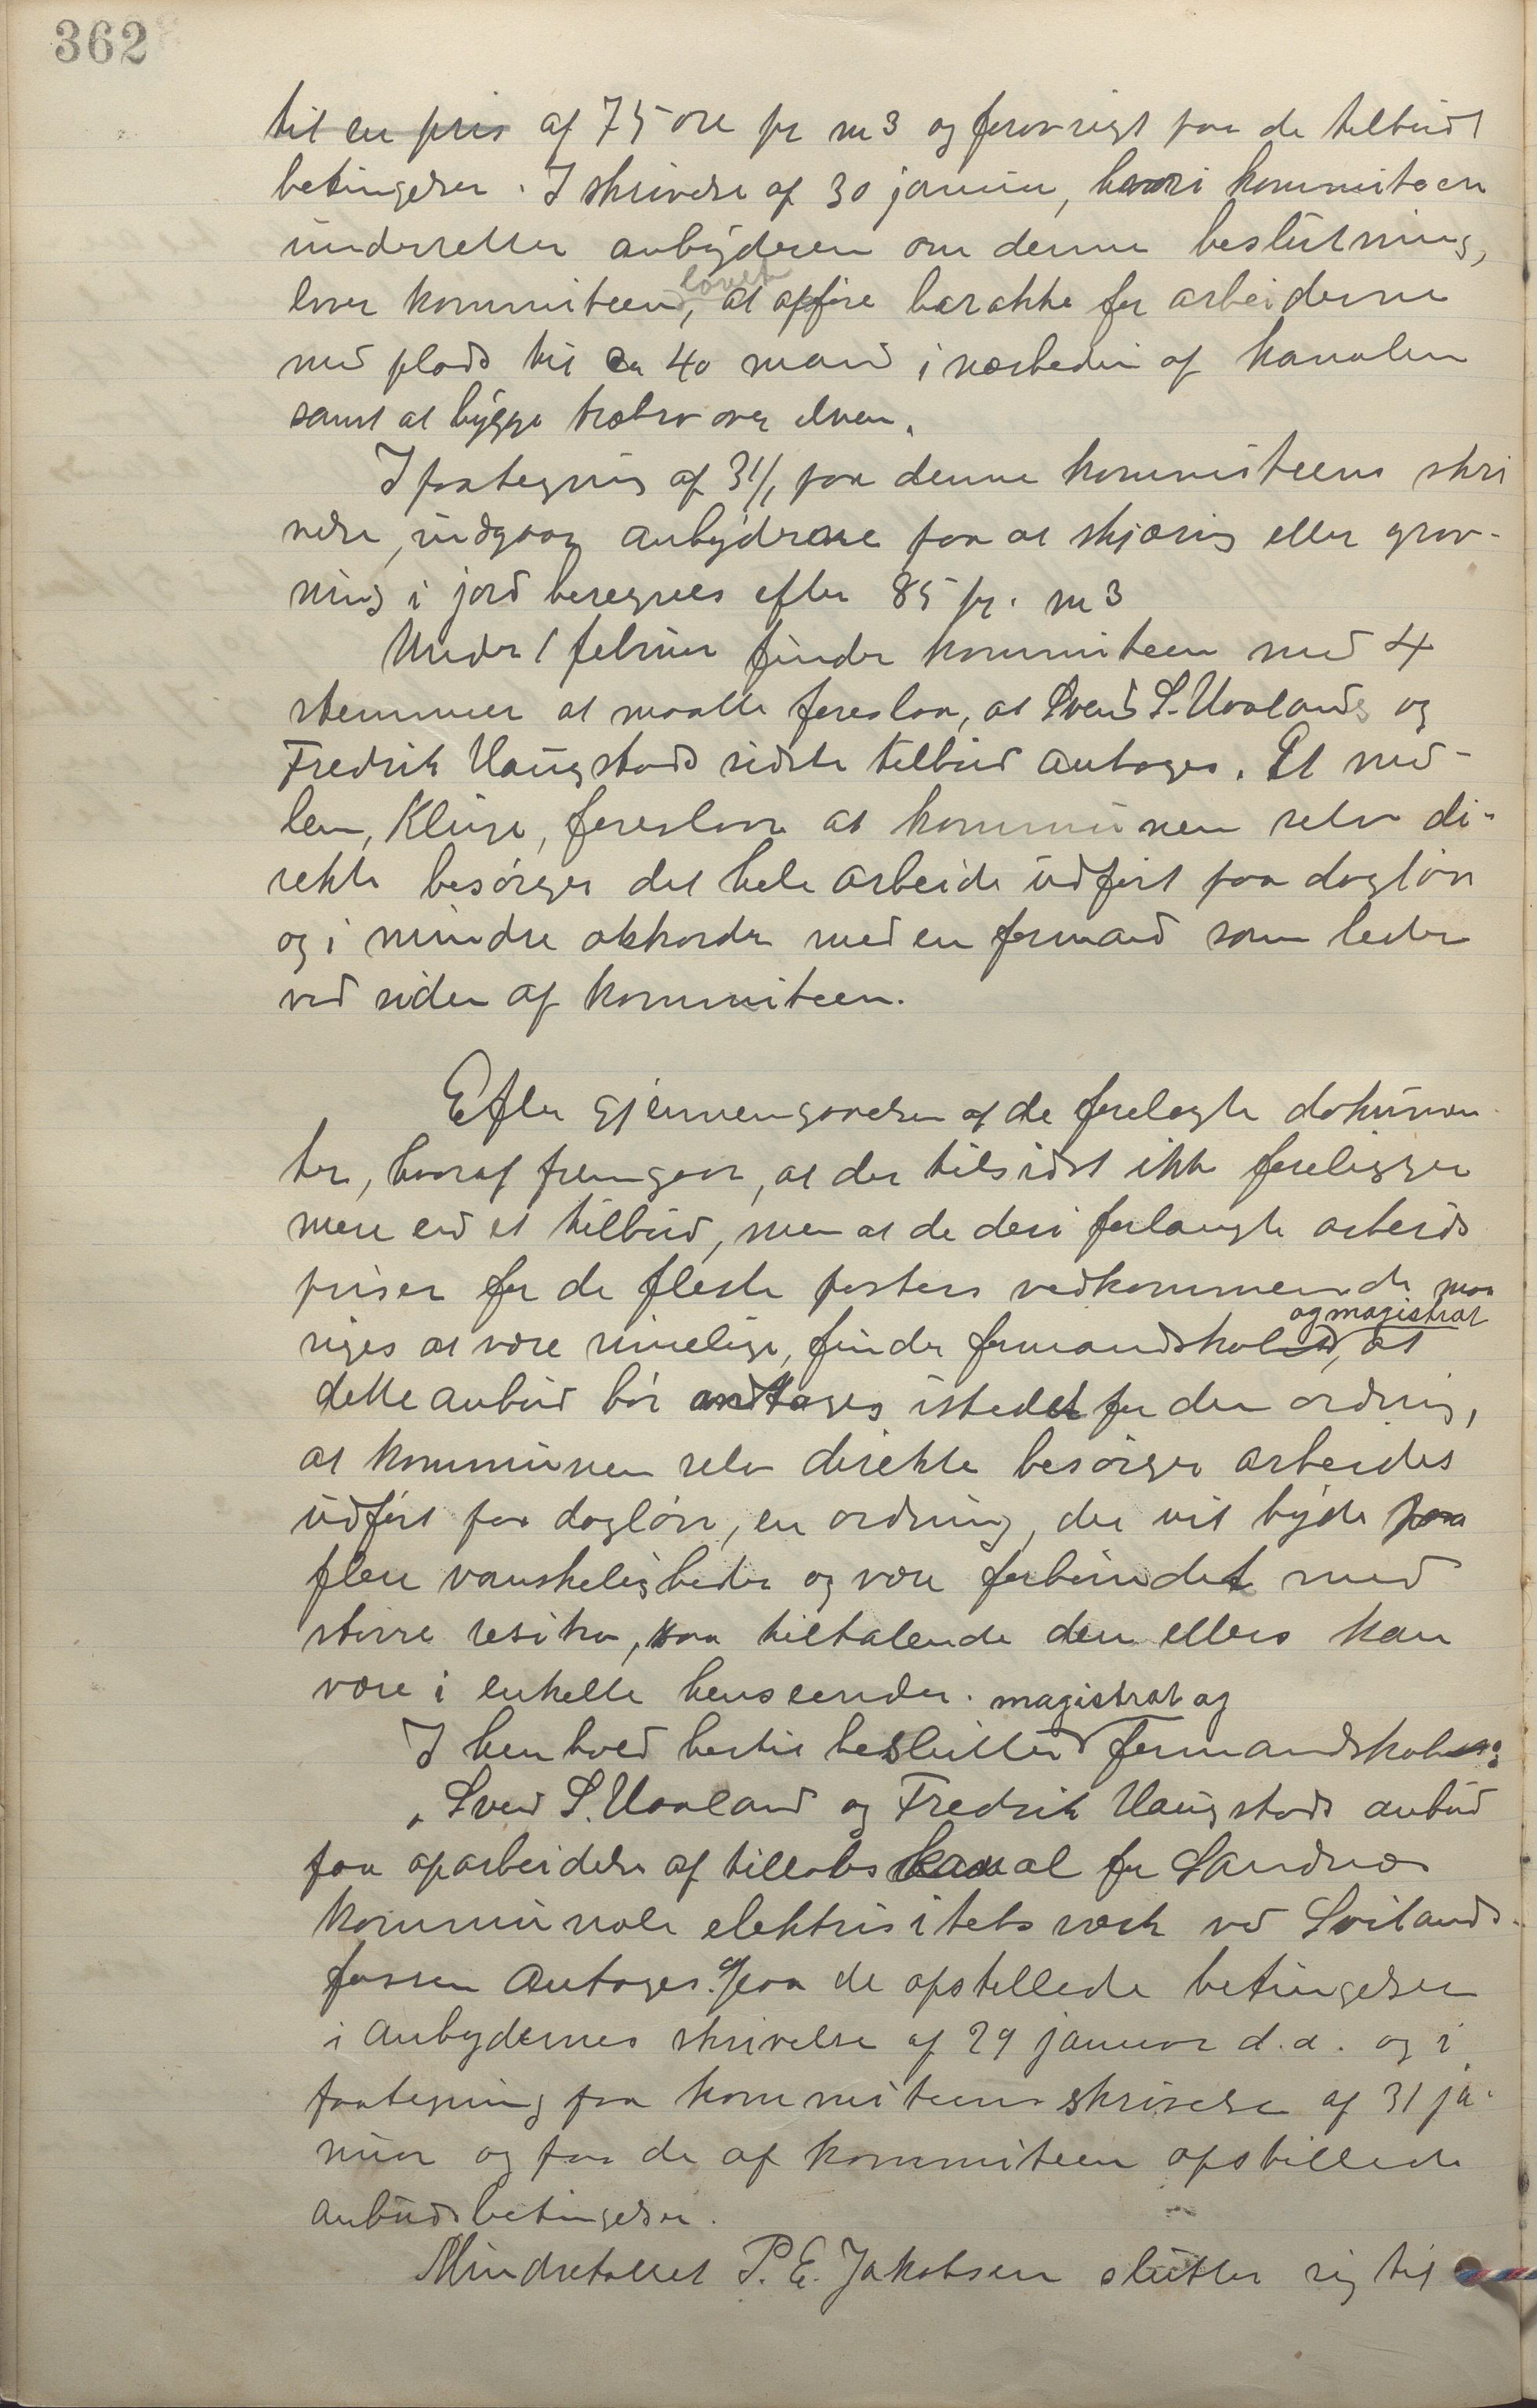 362
til en pris af 75 øre pr m3 og forøvrigt paa de tilbudt
betingelser. I skrivelse af 30 januar, hvori kommiteen
underretter anbyderen om denne beslutning,
lover kommiteen, lovet at opføre barakke for arbeiderne
med plads til ca 40 mand i nærheden af kanalen
samt at bygge træbro over elven.
I paategning af 31/1 paa denne kommiteens skri
velse, indgaar anbyderne paa at skjæring eller grav-
ning i jord beregnes efter 85 pr. m3
Under 1 februar finder kommiteen med 4
stemmer at maatte foreslaa, at Svend S. Uvalands og
Fredrik Haugstads sidste tilbud antages. Et med-
lem, Kluge, foreslaar at kommunen selv di-
rekte besørger det hele arbeide udført paa dagløn
og i mindre akkorder med en formand som leder
ved siden af kommiteen.
Efter gjennemgaaelsen af de forelagte dokumen
ter, hvoraf fremgaar, at der tilsidst ikke foreligger
mere end et tilbud, men at de deri forlangte arbeids
priser for de fleste posters vedkommende maa
siges at være rimelige, finder formandskabet og magistrat, at
dette anbud bør antages istedet for den ordning,
at kommunen selv direkte besørger arbeidet
udført paa dagløn, en ordning, der vil byde paa
flere vanskeligheder og være forbundet med
større risiko, saa tiltalende den ellers kan
være i enkelte henseender.
I henhold hertil beslutter magistrat og formandskab:
"Svend S. Uvaland og Fredrik Haugstads anbud
paa oparbeidelse af tilløbskanal for Sandnes
kommunale elektrisitetsværk ved Svilands-
fossen antages. paa de opstillede betingelser
i anbydernes skrivelse af 29 januar d.a. og i
paategning paa kommiteens skrivelse af 31 ja-
nuar og paa de af kommiteen opstillede
anbudsbetingelser.
Mindretallet P. E. Jakobsen slutter sig til